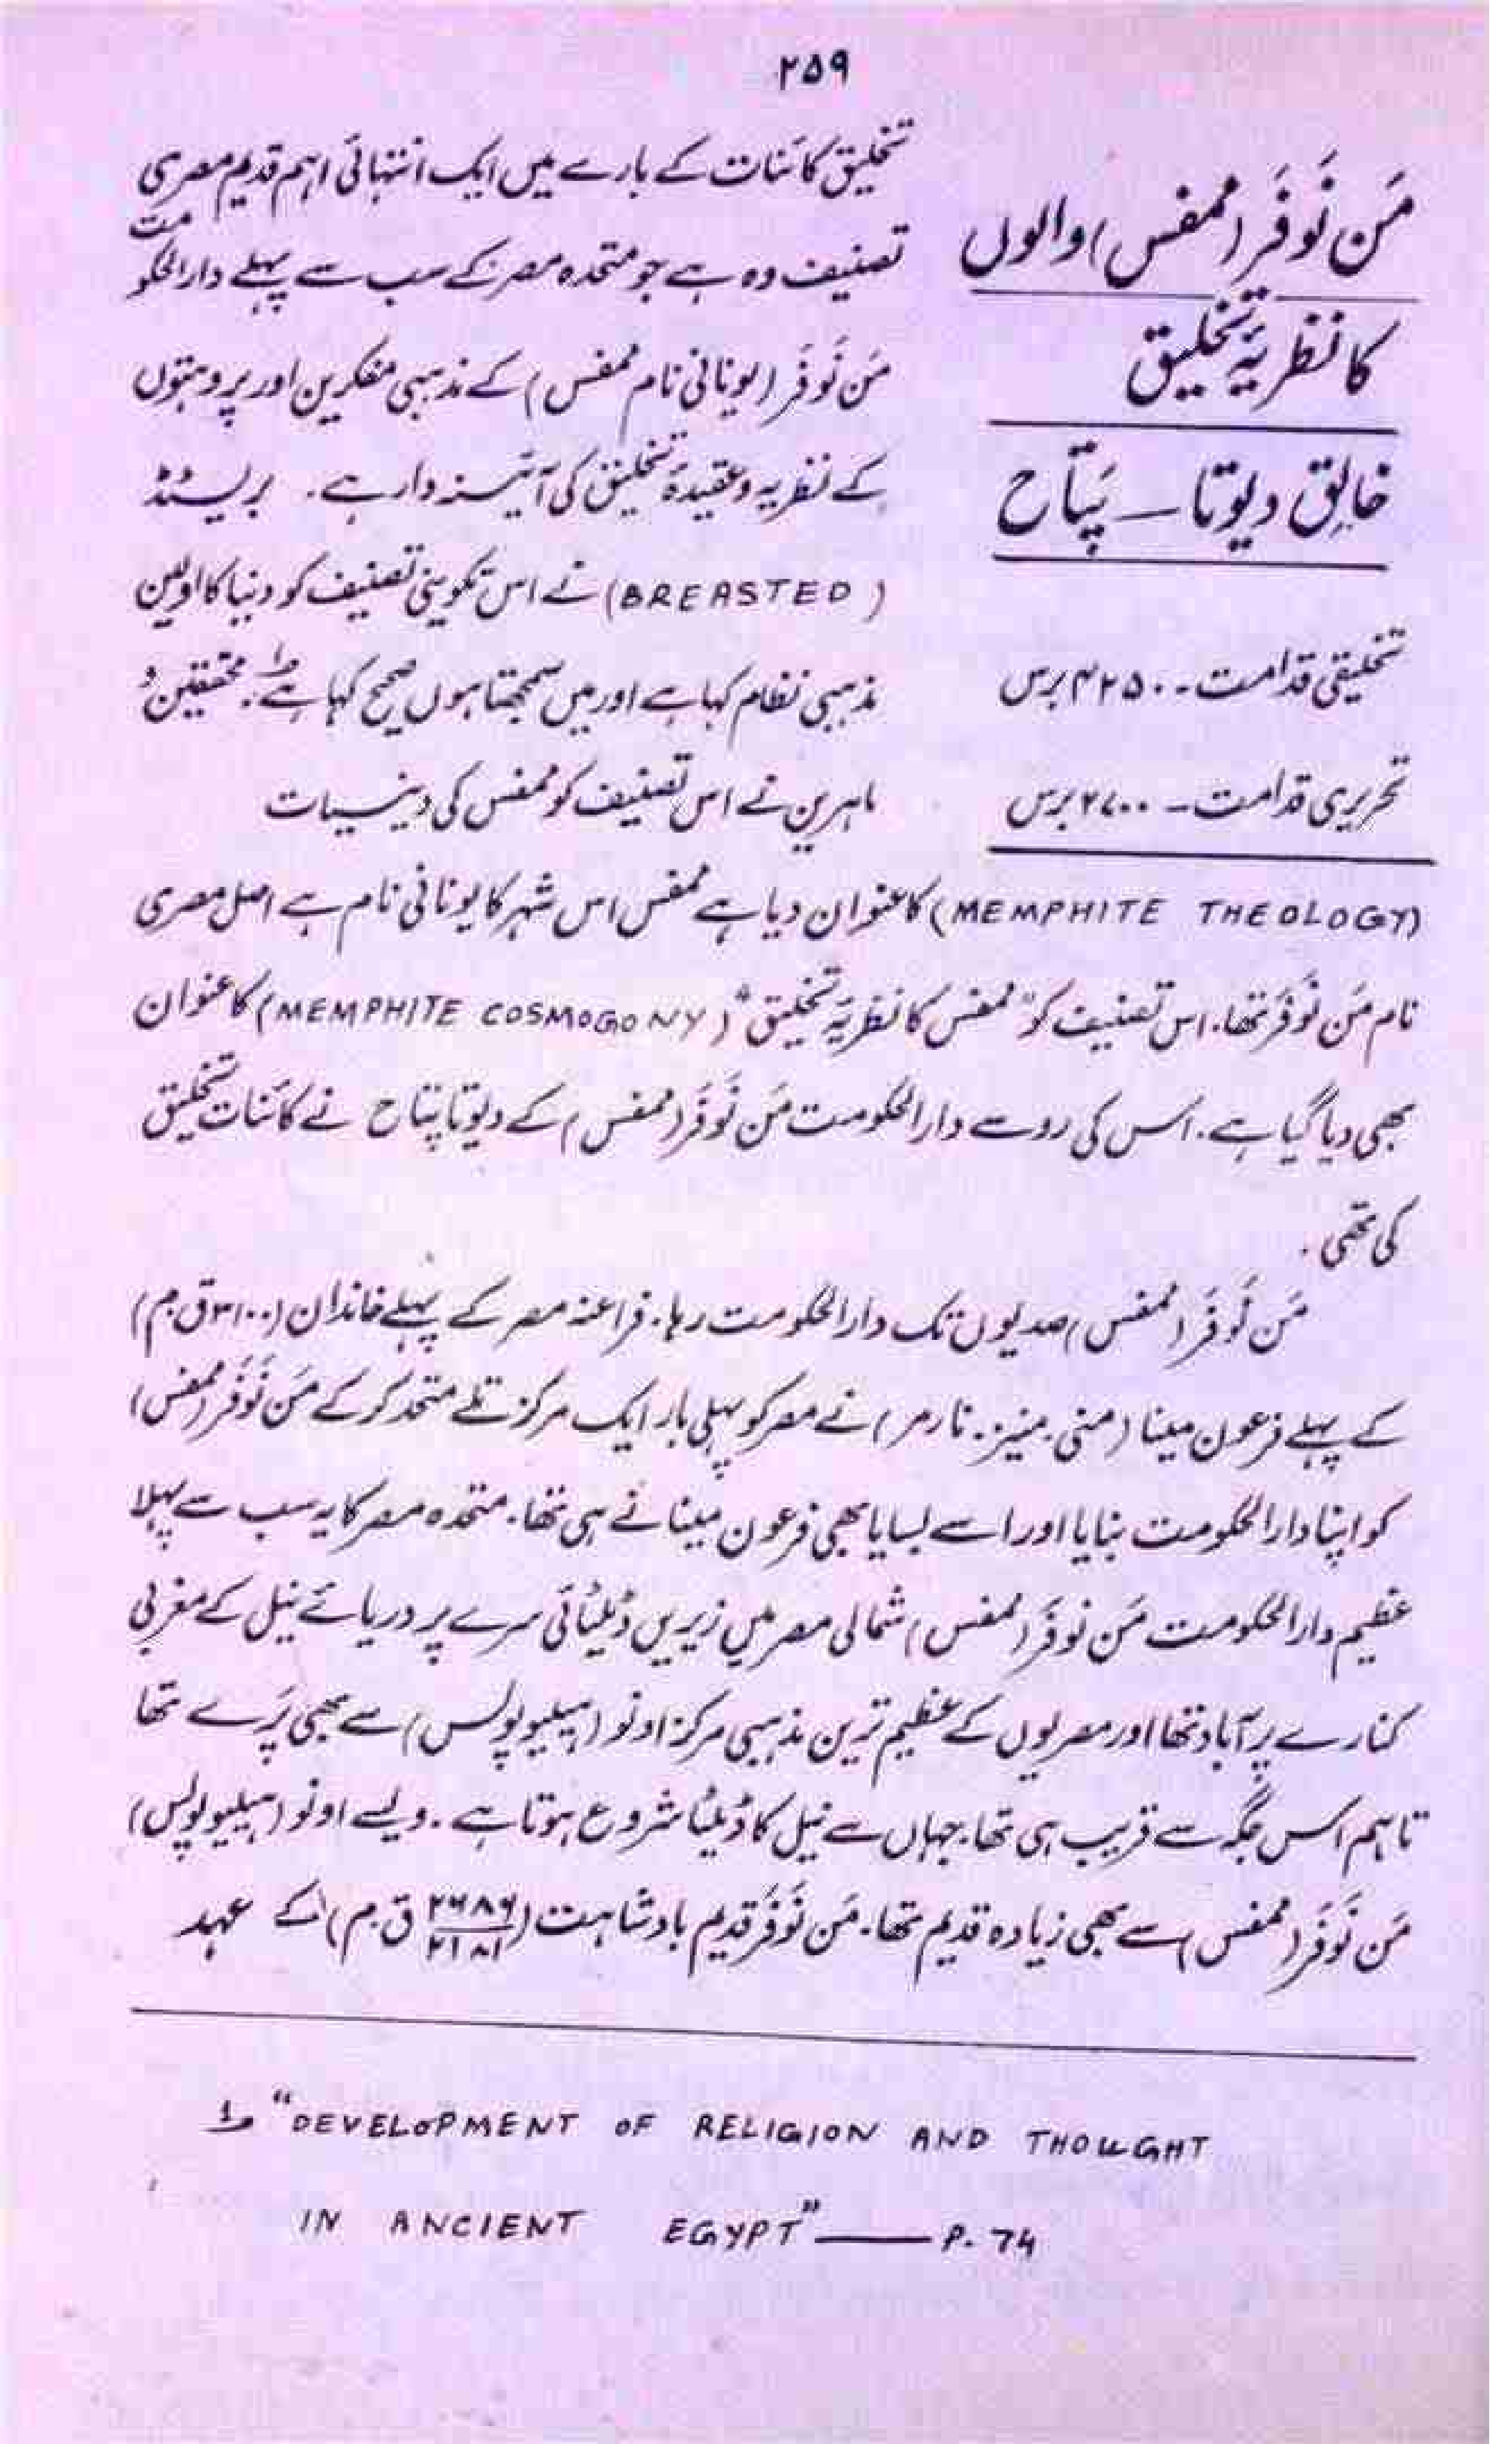 ۲۵۹
مَن نَوفَر (ممفس) والوں
کا نظریۂ تخلیق
خالِق دیوتا — پَتاح
تخلیقی قدامت - ۴۲۵۰ برس
تحریری قدامت - ۲۷۰۰ برس
تخلیق کائنات کے بارے میں ایک انتہائی اہم قدیم مصری
تصنیف وہ ہے جو متحدہ مصر کے سب سے پہلے دارالحکومت
مَن نَوفَر (یونانی نام ممفس) کے مذہبی مفکرین اور پروہتوں
کے نظریہ و عقیدۂ تخلیق کی آئینہ دار ہے۔ بریسٹڈ
(BREASTED) نے اس تکوینی تصنیف کو دنیا کا اولین
مذہبی نظام کہا ہے اور میں سمجھتا ہوں صحیح کہا ہے ؎۱۔ محققین و
ماہرین نے اس تصنیف کو ممفس کی دینیات
(MEMPHITE THEOLOGY) کا عنوان دیا ہے ممفس اس شہر کا یونانی نام ہے اصل مصری
نام مَن نَوفَر تھا۔ اس تصنیف کو "ممفس کا نظریۂ تخلیق" (MEMPHITE COSMOGONY) کا عنوان
بھی دیا گیا ہے۔ اُس کی رو سے دارالحکومت مَن نَوفَر (ممفس) کے دیوتا پتاح نے کائنات تخلیق
کی تھی۔
مَن نَوفَر (ممفس) صدیوں تک دارالحکومت رہا۔ فراعنہ مصر کے پہلے خاندان (۳۱۰۰ ق م)
کے پہلے فرعون مینا (منی۔ مینیز۔ نارمر) نے مصر کو پہلی بار ایک مرکز تلے متحد کر کے مَن نَوفَر (ممفس)
کو اپنا دارالحکومت بنایا اور اسے بسایا بھی فرعون مینا نے ہی تھا۔ متحدہ مصر کا یہ سب سے پہلا
عظیم دارالحکومت مَن نَوفَر (ممفس) شمالی مصر میں زیریں ڈیلٹائی سرے پر دریائے نیل کے مغربی
کنارے پر آباد تھا اور مصریوں کے عظیم ترین مذہبی مرکز اونو (ہیلیوپولس) سے بھی پَرے تھا
تاہم اس جگہ سے قریب ہی تھا۔ جہاں سے نیل کا ڈیلٹا شروع ہوتا ہے۔ ویسے اونو (ہیلیوپولس)
مَن نَوفَر (ممفس) سے بھی زیادہ قدیم تھا۔ مَن نَوفَر قدیم بادشاہت (۲۶۸۶/۲۱۸۱ ق۔م) کے عہد
؎۱ "DEVELOPMENT OF RELIGION AND THOUGHT
IN ANCIENT EGYPT" — P. 74